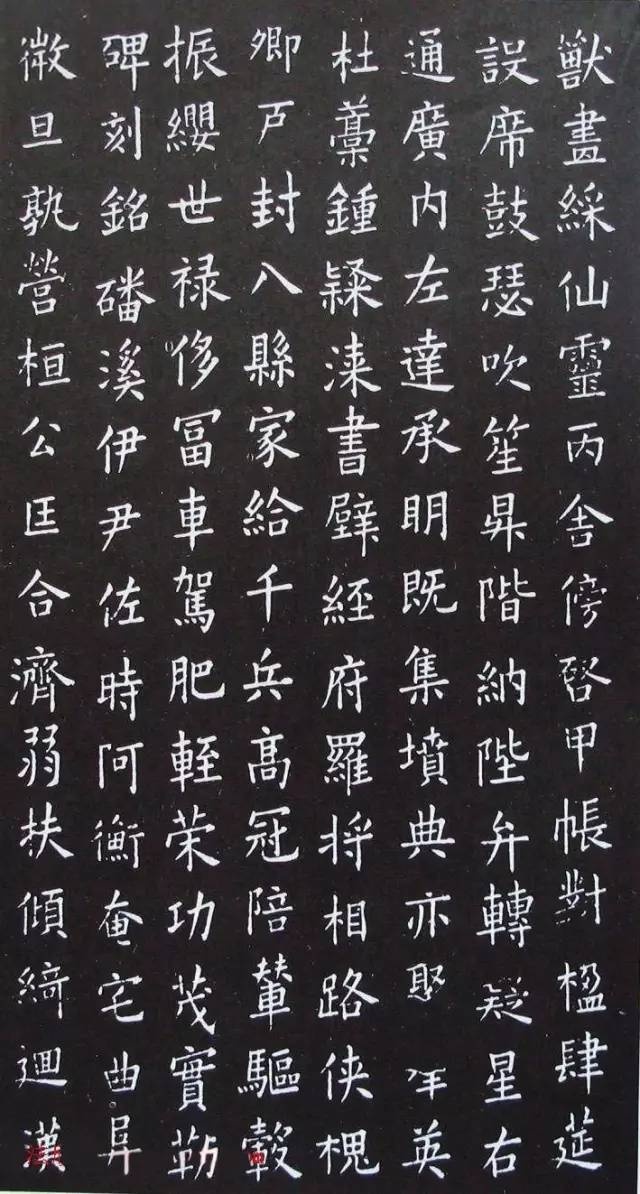 獸畫綵仙靈丙舍傍啓甲帳對楹肆筵
設席鼓瑟吹笙昇階納陛弁轉疑星右
通廣内左達承明既集墳典亦聚英
杜藁鍾隸漆書壁經府羅将相路俠槐
卿户封八縣家給千兵高冠陪輦驅轂
振纓世禄侈冨車駕肥輕策功茂實勒
碑刻銘磻溪伊尹佐時阿衡奄宅曲阜
微旦孰營桓公匡合濟弱扶傾綺迴漢